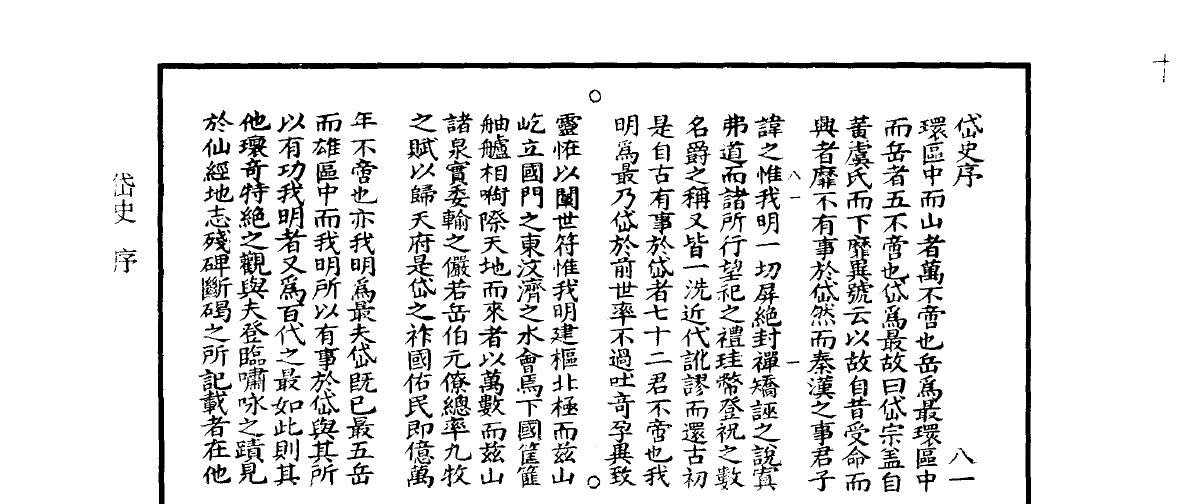 岱史序 八一
環區中而山者萬不啻也岳爲最環區中
而岳者五不啻也岱爲最故曰岱宗盖自
黃虞氏而下靡異號云以故自昔受命而
興者靡不有事於岱然而秦漢之事君子
諱之惟我明一切屏絶封禪矯誣之說寘
弗道而諸所行望祀之禮珪幣登祝之數
名爵之稱又皆一洗近代訛謬而還古初
是自古有事於岱者七十二君不啻也我
明爲最乃岱於前世率不過吐奇孕異致
靈恠以闡世符惟我明建樞北極而兹山
屹立國門之東汶濟之水會焉下國筐篚
舳艫相啣際天地而來者以萬數而兹山
諸泉實委輸之儼若岳伯元僚總率九牧
之賦以歸天府是岱之祚國佑民即億萬
年不啻也亦我明爲最夫岱既已最五岳
而雄區中而我明所以有事於岱與其所
以有功我明者又爲百代之最如此則其
他瓌奇特絶之觀與夫登臨嘯咏之蹟見
於仙經地志殘碑斷碣之所記載者在他
岱史 序